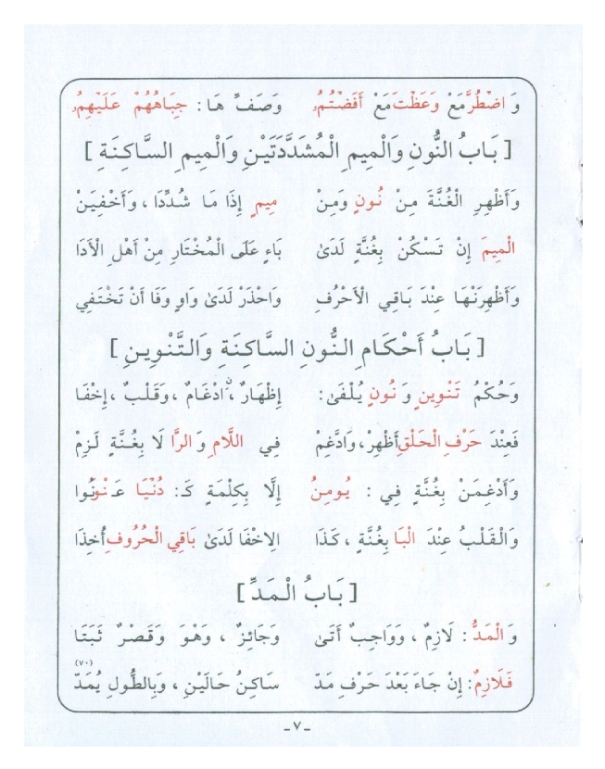 وَ اضْطُرَّ مَعْ وَعَظْتَ مَعْ أَفَضْتُمُ، وَصَفِّ هَا: جِبَاهُهُمْ عَلَيْهِمُ،
[ بَابُ النُّونِ وَالْمِيمِ الْمُشَدَّدَتَيْنِ وَالْمِيمِ السَّاكِنَةِ ]
وَأَظْهِرِ الْغُنَّةَ مِنْ نُونٍ وَمِنْ مِيمٍ إِذَا مَا شُدِّدَا ، وَأَخْفِيَنْ
الْمِيمَ إِنْ تَسْكُنْ بِغُنَّةٍ لَدَىٰ بَاءٍ عَلَى الْمُخْتَارِ مِنْ أَهْلِ الْأَدَا
وَأَظْهِرَنْهَا عِنْدَ بَاقِي الْأَحْرُفِ وَاحْذَرْ لَدَىٰ وَاوٍ وَفَا أَنْ تَخْتَفِي
[ بَابُ أَحْكَامِ النُّونِ السَّاكِنَةِ وَالتَّنْوِينِ ]
وَحُكْمُ تَنْوِينٍ وَ نُونٍ يُلْفَىٰ: إِظْهَارٌ ، ادْغَامٌ ، وَقَلْبٌ ، إِخْفَا
فَعِنْدَ حَرْفِ الْحَلْقِ أَظْهِرْ ، وَادَّغِمْ فِي اللَّامِ وَ الرَّا لَا بِغُنَّةٍ لَزِمْ
وَأَدْغِمَنْ بِغُنَّةٍ فِي : يُومِنُ إِلَّا بِكِلْمَةٍ كَـ: دُنْيَا عَنْوَنُوا
وَالْقَلْبُ عِنْدَ الْبَا بِغُنَّةٍ ، كَذَا الِاخْفَا لَدَىٰ بَاقِي الْحُرُوفِ أُخِذَا
[ بَابُ الْمَدِّ ]
وَ الْمَدُّ : لَازِمٌ ، وَوَاجِبٌ أَتَىٰ وَجَائِزٌ ، وَهْوَ وَقَصْرٌ ثَبَتَا
(٧٠)
فَلَازِمٌ: إِنْ جَاءَ بَعْدَ حَرْفِ مَدّ سَاكِنُ حَالَيْنِ ، وَبِالطُّولِ يُمَدّ
ـ٧ـ